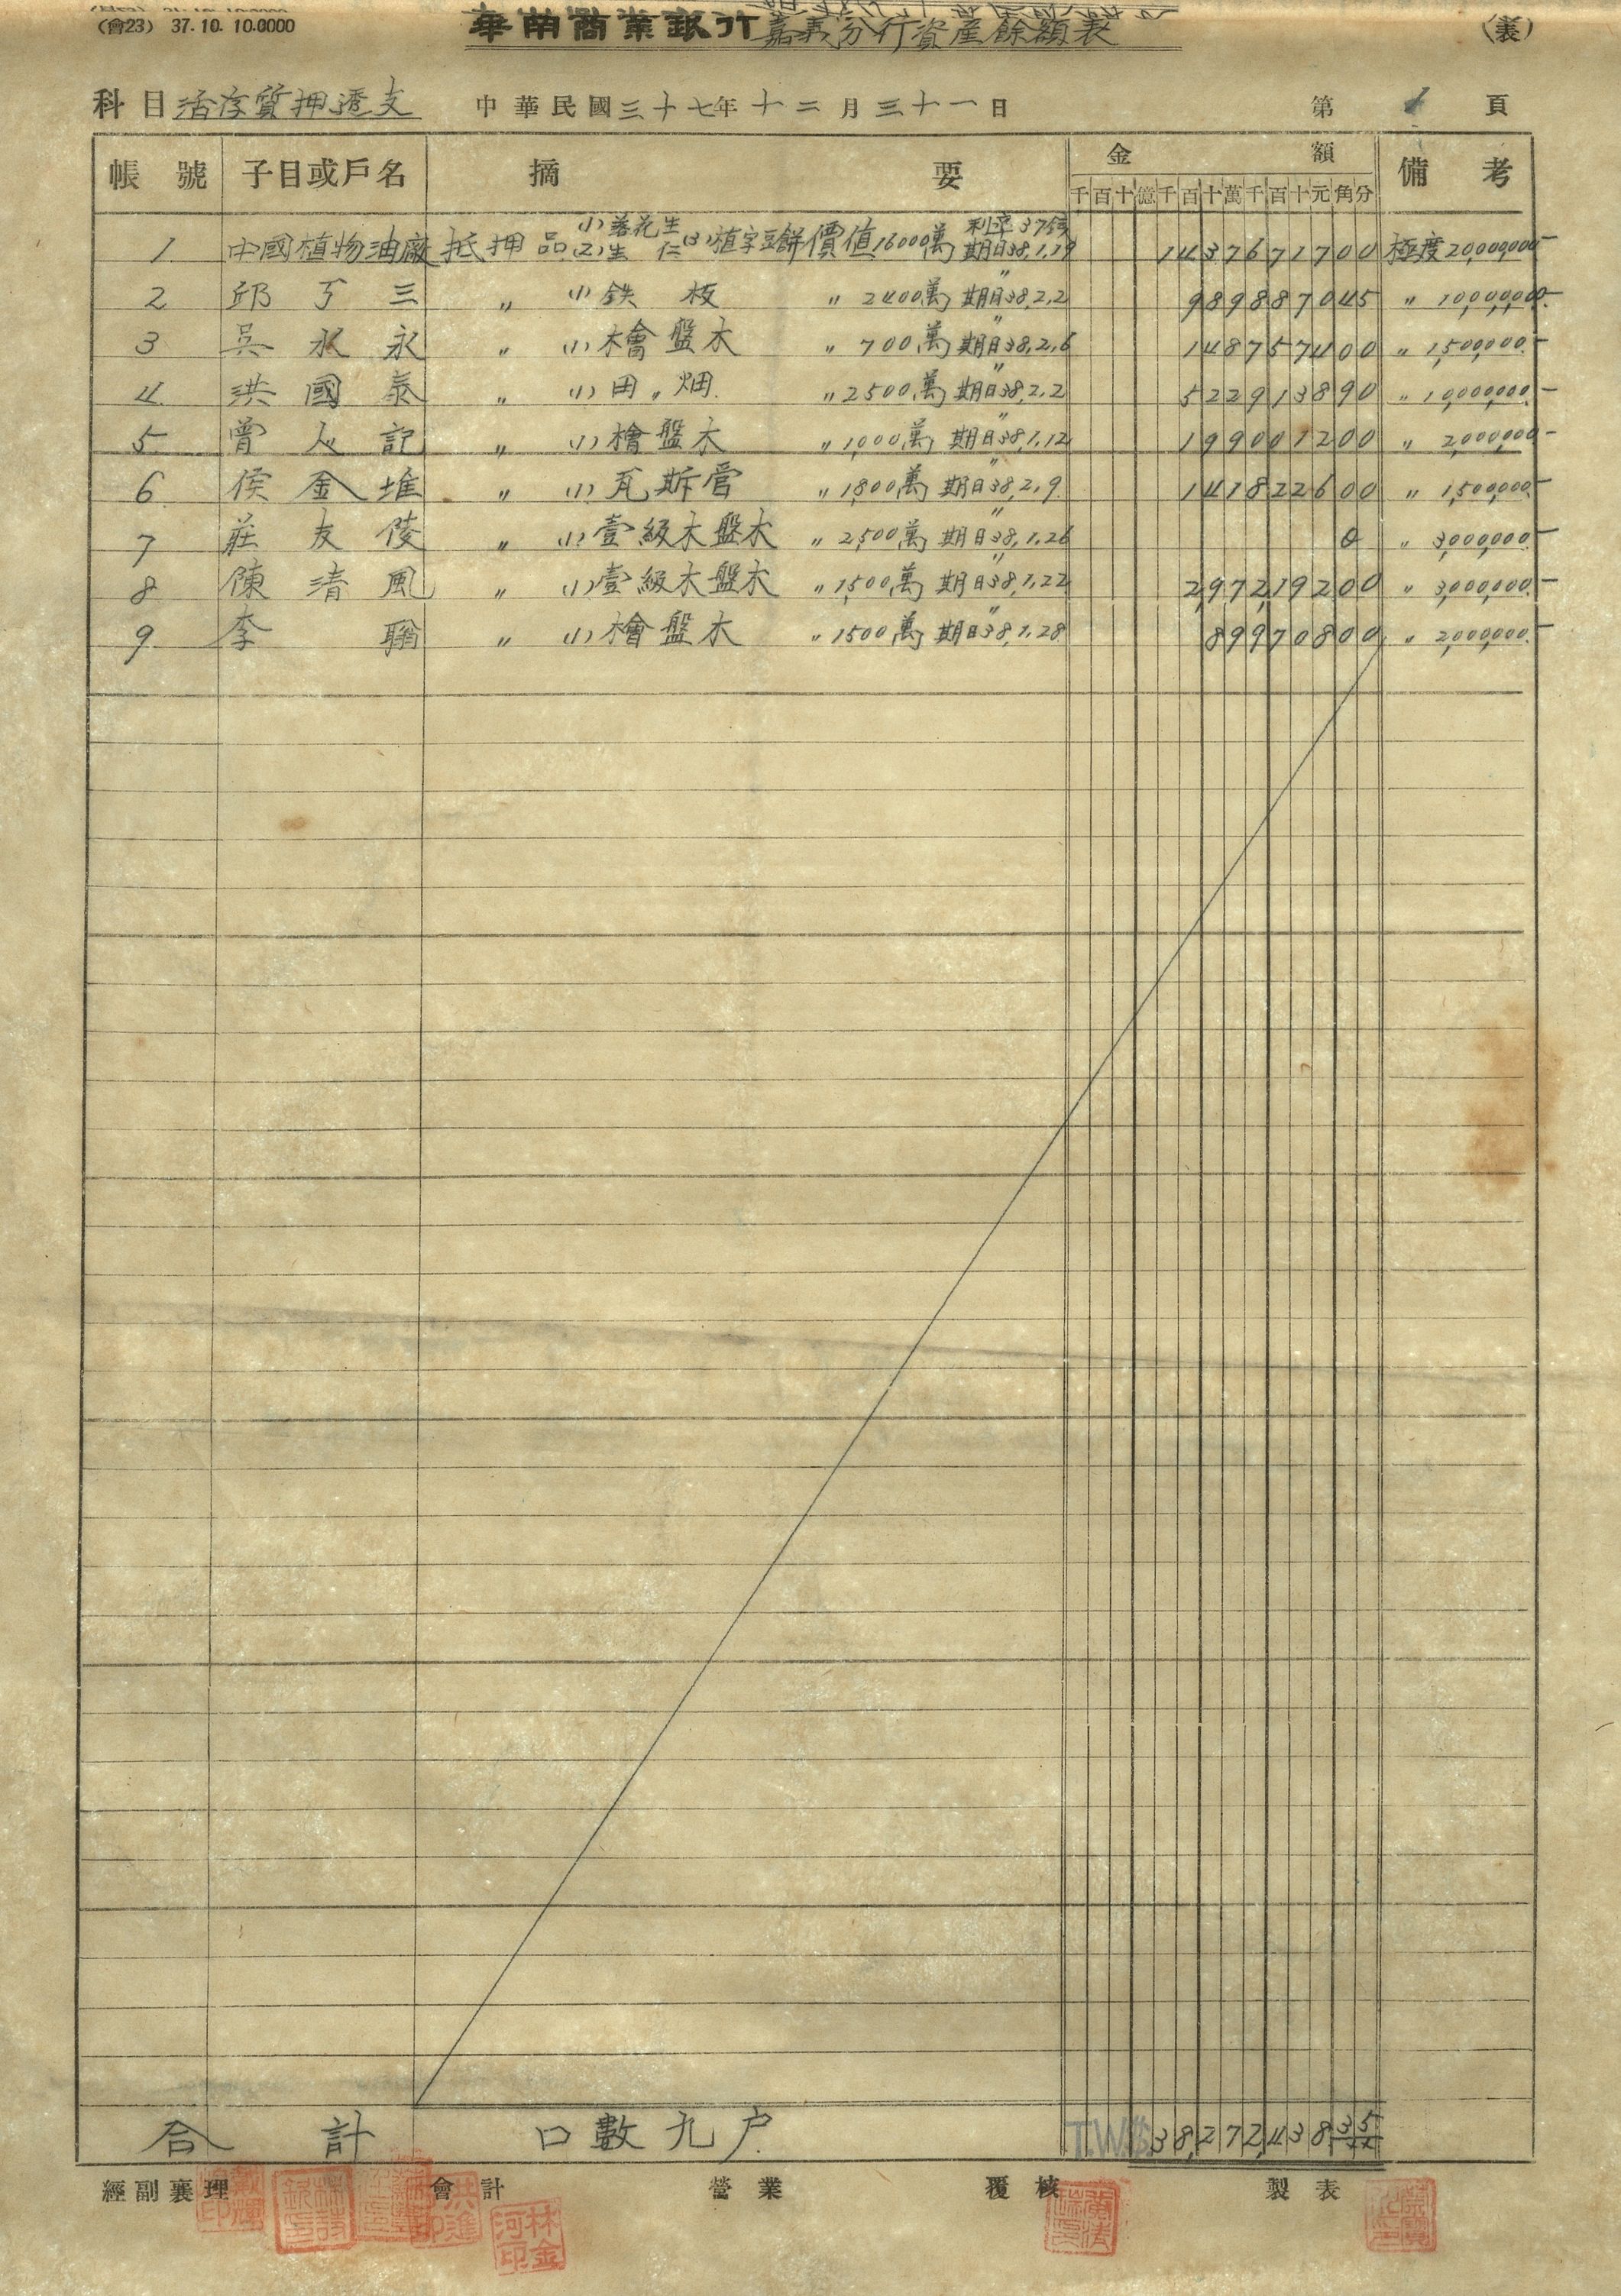 (會23) 37.10. 10.0000
華南商業銀行嘉義分行資產餘額表
(表)
科目活存質押透支 中華民國三十七年十二月三十一日 第 1 頁
帳號 子目或戶名 摘要 金額 備考
千百十億千百十萬千百十元角分
1. 中國植物油廠 抵押品 (1)落花生 (2)生仁 (3)植字豆餅 價值16000萬 利率37 期日38,1,19 1437671700 極度20,000,000-
2 邱丁三 〃 (1)鉄板 〃 2400萬 期日38,2,2 989887045 〃 10,000,000-
3 吳永 〃 (1)檜盤木 〃 700萬 期日38,2,6 148757400 〃 1,500,000.-
4. 洪國泰 〃 (1)田〃畑. 〃 2500萬 期日38,2,2 522913890 〃 10,000,000.-
5. 曾人記 〃 (1)檜盤木 〃 1,000萬 期日38,1,12 199001200 〃 2,000,000-
6. 侯金堆 〃 (1)瓦斯管 〃 1,800萬 期日38,2,9. 141822600 〃 1,500,000.-
7 莊友陵 〃 (1)壹級木盤木 〃 2,500萬 期日38,1,26 0 〃 3,000,000.-
8 陳清風 〃 (1)壹級木盤木 〃 1,500萬 期日38,1,22 297219200 〃 3,000,000.-
9. 李 〃 (1)檜盤木 〃 1500萬 期日38,1,28 89970800 〃 2,000,000.-
合計 口數九戶. T.W.$.38,272,438.35
經副襄理 會計 營業 覆核 製表
林金河印